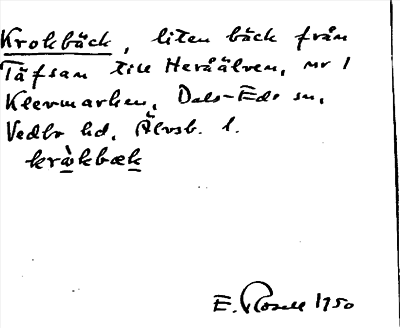 Krokbäck, liten bäck från
Täfsan till Heråälven, nr 1
Klevmarken, Dals-Eds sn,
Vedbo hd, Älvsb. l.
kràkbæk
E. Rosell 1950